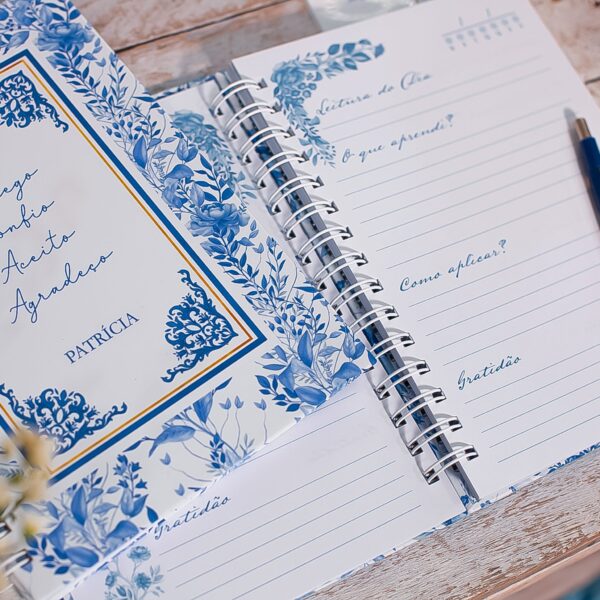 Aceito
Agradeço
PATRÍCIA
Leitura do Dia
O que aprendi?
Como aplicar?
Gratidão
Gratidão